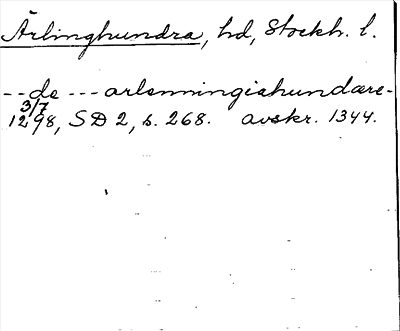 Ärlinghundra, hd, Stockh. l.
-- de --- arlenningiahundære-
3/7
1298, SD 2, s. 268. avskr. 1344.